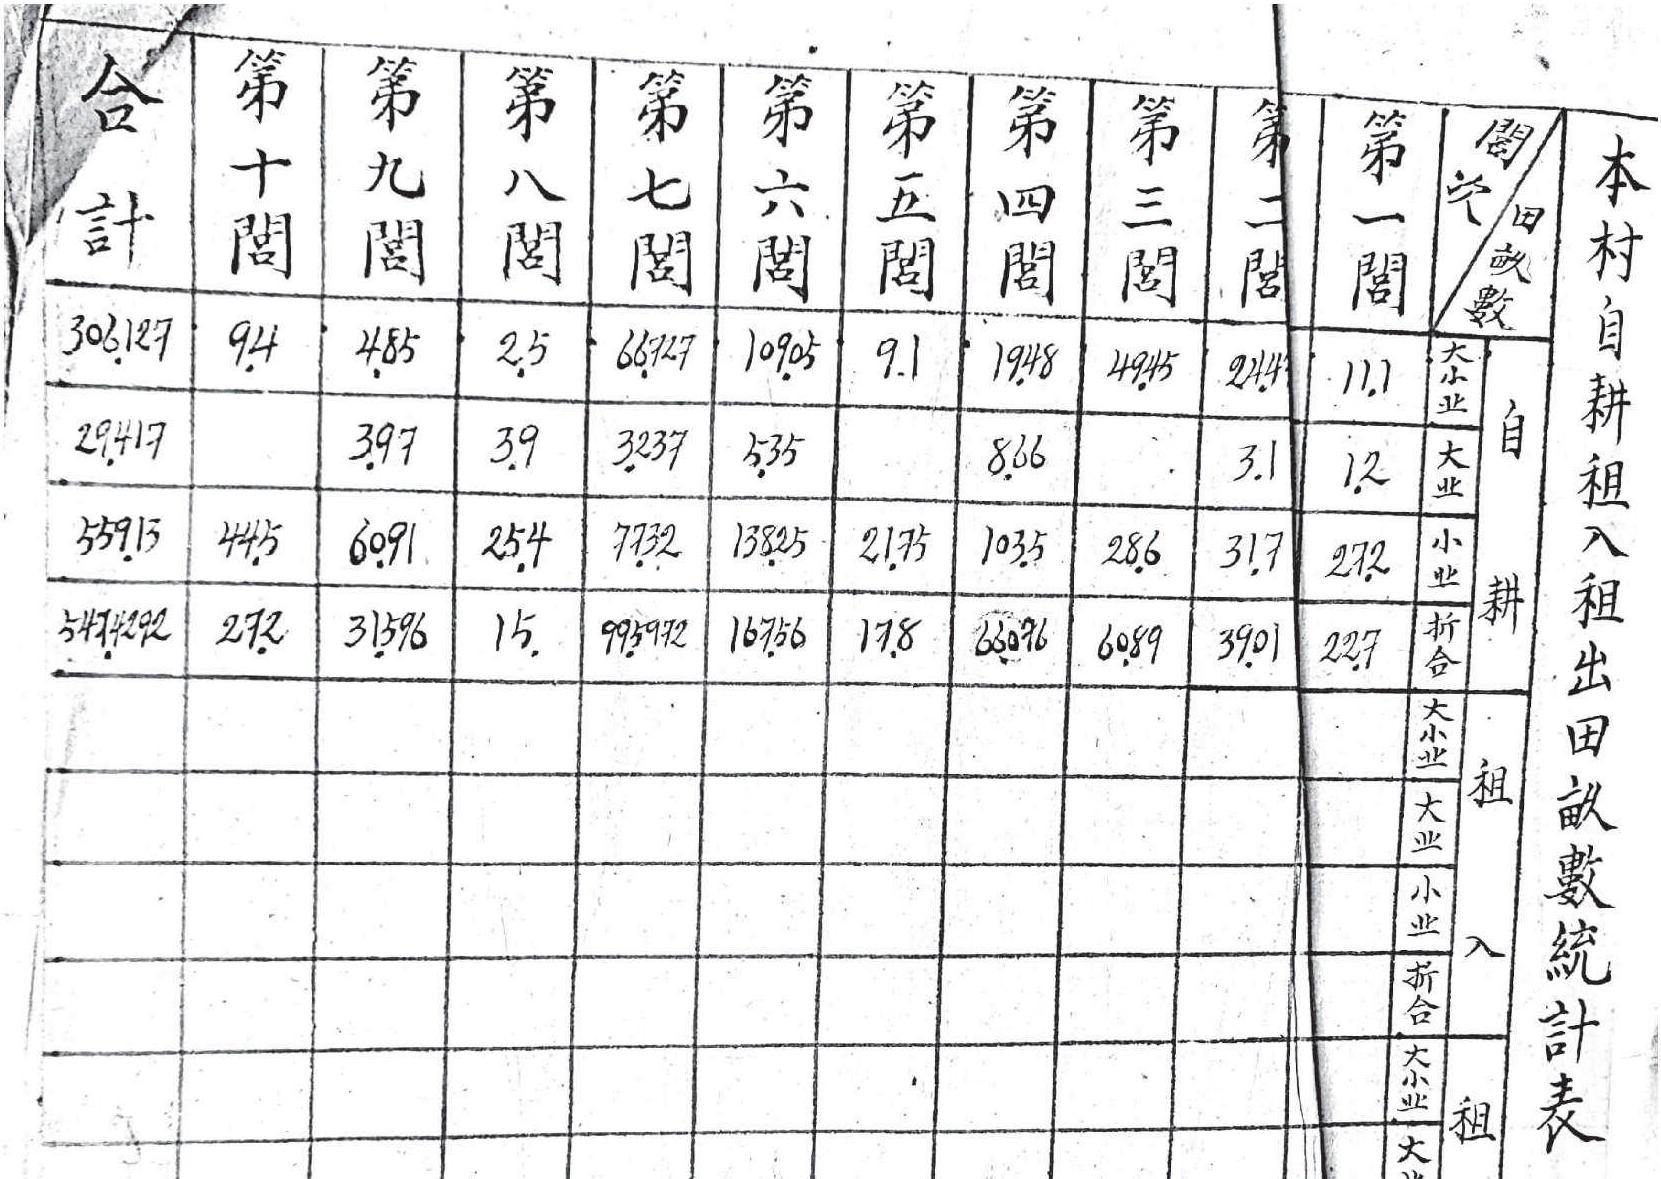 本村自耕租入租出田畝數統計表
閭次 田畝數
自耕 大小业 大业 小业 折合
租入 大小业 大业 小业 折合
租 大小业 大业
第一閭 11.1 1.2 27.2 22.7
第二閭 24.4 3.1 31.7 39.01
第三閭 49.45 28.6 60.89
第四閭 19.48 8.66 103.5 66.076
第五閭 9.1 21.75 17.8
第六閭 109.05 5.35 138.25 167.56
第七閭 66.727 3.237 77.32 99.5972
第八閭 2.5 3.9 25.4 15.
第九閭 4.85 3.97 60.91 31.596
第十閭 9.4 44.5 27.2
合計 306.127 29.417 559.13 547.4292